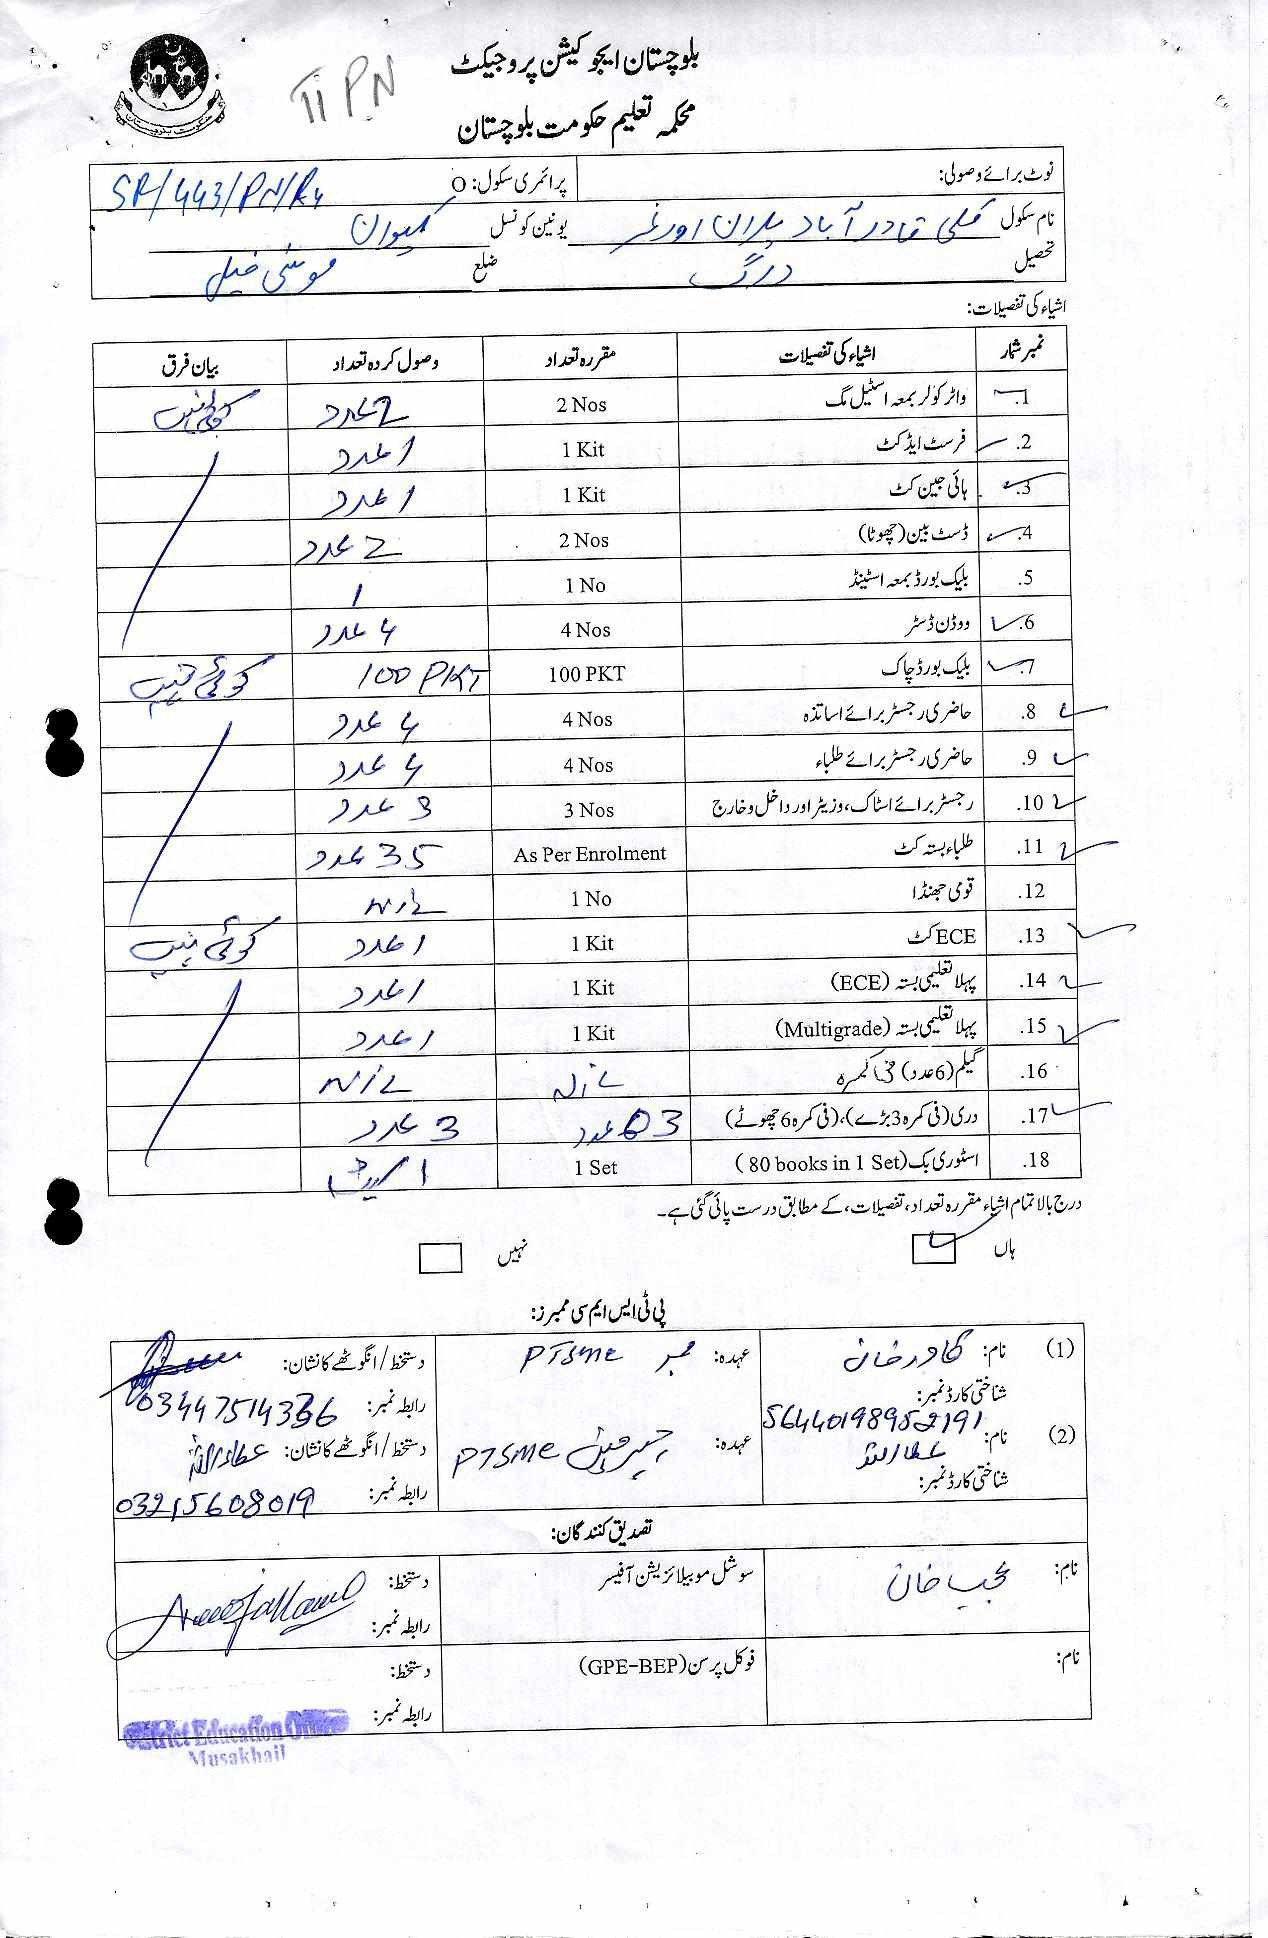 بلوچستان ایجوکیشن پروجیکٹ
TI PN
محکمہ تعلیم حکومت بلوچستان
نوٹ برائے وصولی:
پرائمری سکول: O SR/443/PN/R4
نام سکول کلی قادر آباد پلران اورغر یونین کونسل کیوان
تحصیل درگ ضلع موسیٰ خیل
اشیاء کی تفصیلات:
نمبر شمار اشیاء کی تفصیلات مقررہ تعداد وصول کردہ تعداد بیان فرق
1. واٹر کولر بمعہ اسٹیل مگ 2 Nos 2 عدد کوئی نہیں
2. فرسٹ ایڈ کٹ 1 Kit 1 عدد
3. ہائی جین کٹ 1 Kit 1 عدد
4. ڈسٹ بین (چھوٹا) 2 Nos 2 عدد
5. بلیک بورڈ بمعہ اسٹینڈ 1 No 1
6. ووڈن ڈسٹر 4 Nos 4 عدد
7. بلیک بورڈ چاک 100 PKT 100 PKT کوئی نہیں
8. حاضری رجسٹر برائے اساتذہ 4 Nos 4 عدد
9. حاضری رجسٹر برائے طلباء 4 Nos 4 عدد
10. رجسٹر برائے اسٹاک، وزیٹر اور داخل و خارج 3 Nos 3 عدد
11. طلباء بستہ کٹ As Per Enrolment 35 عدد
12. قومی جھنڈا 1 No NIL
13. ECE کٹ 1 Kit 1 عدد کوئی نہیں
14. پہلا تعلیمی بستہ (ECE) 1 Kit 1 عدد
15. پہلا تعلیمی بستہ (Multigrade) 1 Kit 1 عدد
16. گیلم (6 عدد) فی کمرہ NIL NIL
17. دری (فی کمرہ 3 بڑے)، (فی کمرہ 6 چھوٹے) 03 عدد 3 عدد
18. اسٹوری بک (80 books in 1 Set) 1 Set 1 سیٹ
درج بالا تمام اشیاء مقررہ تعداد، تفصیلات، کے مطابق درست پائی گئی ہے۔
ہاں نہیں
پی ٹی ایس ایم سی ممبرز:
(1) نام: عہدہ: ممبر PTSMC دستخط/انگوٹھے کا نشان:
شناختی کارڈ نمبر: 56440198952191 رابطہ نمبر: 03447514336
(2) نام: عطاء اللہ عہدہ: چیرمین PTSMC دستخط/انگوٹھے کا نشان: عطاء اللہ
شناختی کارڈ نمبر: رابطہ نمبر: 03215608019
تصدیق کنندگان:
نام: مجیب خان سوشل موبیلائزیشن آفیسر دستخط:
رابطہ نمبر:
نام: فوکل پرسن (GPE-BEP) دستخط:
رابطہ نمبر:
District Education Officer
Musakhail